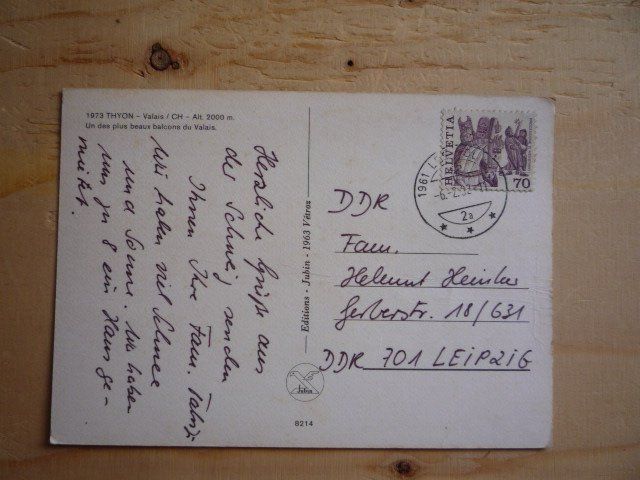 1973 THYON - Valais / CH - Alt. 2000 m.
Un des plus beaux balcons du Valais.
Herzliche Grüße aus
der Schweiz senden
Ihnen Ihre Fam.
Wir haben viel Schnee
und Sonne. Wir haben
uns zu 8 ein Haus ge-
mietet.
Editions - Jubin - 1963 Vétroz
Jubin
8214
HELVETIA
70
1961
2a
DDR
Fam.
Helmut
Gerberstr. 18/631
DDR 701 LEIPZIG